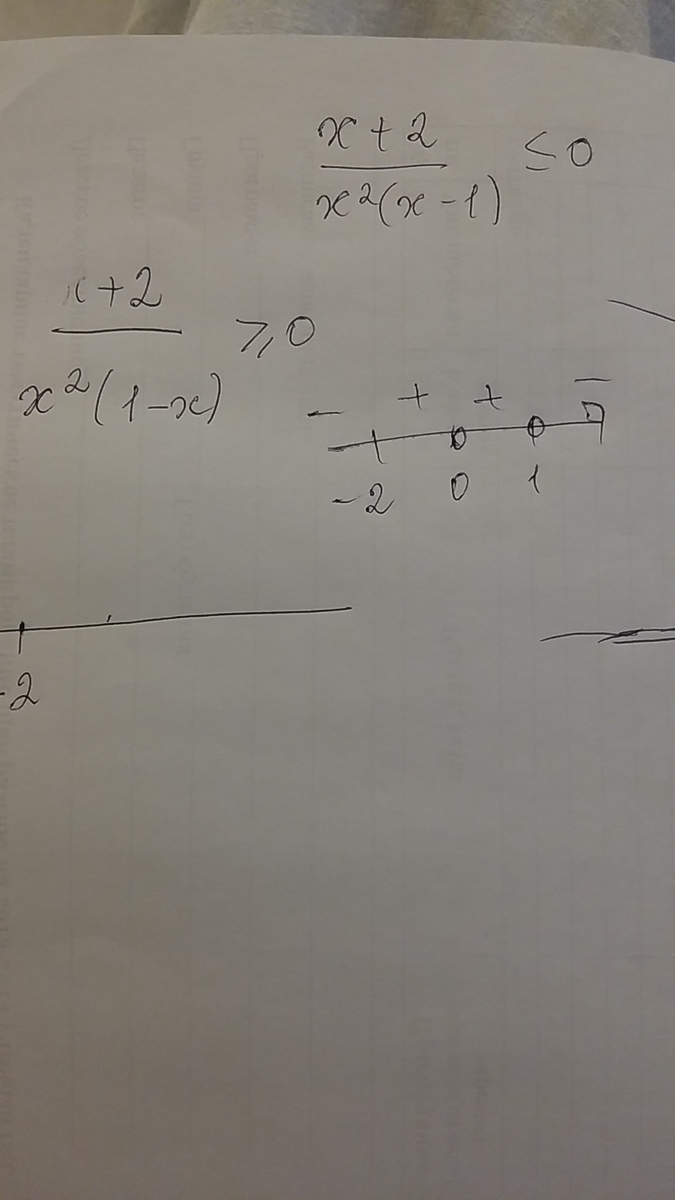 x + 2
x²(x - 1)
≤ 0
x+2
x²(1-x)
≥ 0
- + + -
-2 0 1
-2